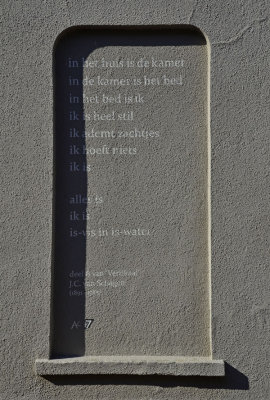 in het huis is de kamer
in de kamer is het bed
in het bed is ik
ik is heel stil
ik ademt zachtjes
ik hoeft niets
ik is
alles is
ik is
is-vis in is-water
deel van 'Verdwaal'
J.C. van Schagen
(1891 - 1985)